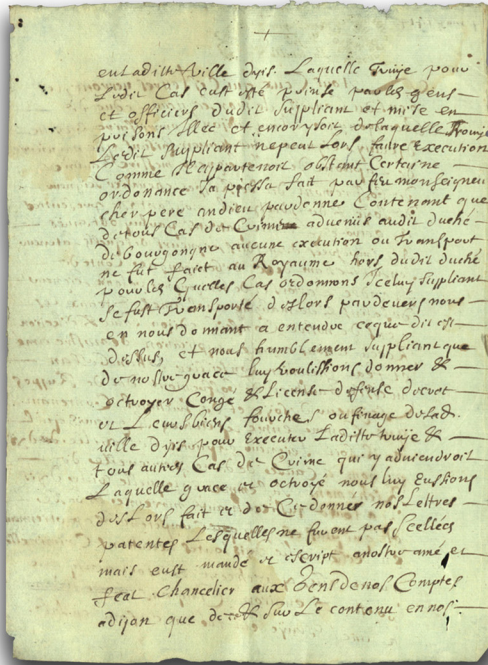 en Ladite ville dys. Laquelle Truye pour
Ledit Cas eust esté prinse par les gens
et officiers dudit Suppliant et mise en
prisons Illec et encor y soit de laquelle Truye
Ledit Suppliant ne peut Lors faire Execution
Comme Il appartenoit obstant Certaine
ordonance Ja pieça fait par feu monseigneur
cher pere an dieu pardonne Contenant que
de tous Cas de Crime advenus audit duché
de bourgongne aucune execution ou Transport
ne fut faict au Royaume hors dudit duché
pour les Quelles Cas ordonnons Iceluy Suppliant
se fust Transporté deslors par devers nous
en nous donnant a entendre ce que dit est
dessus, et nous humblement Suppliant que
de nostre grace luy voulissions donner &
octroyer Congé & License
et Leurs biens fourches ou finage de lad.
ville dys pour Executer Ladite truye &
tous autres Cas de Crime qui y adviendroit
Laquelle grace et octroye nous luy Eussions
des Lors fait et de Ce donné nos Lettres
patentes Lesquelles ne furent pas Scellees
mais eust mandé et escript a nostre amé et
feal Chancelier aux Gens de nos Comptes
a dijon que sur Le contenu en nos